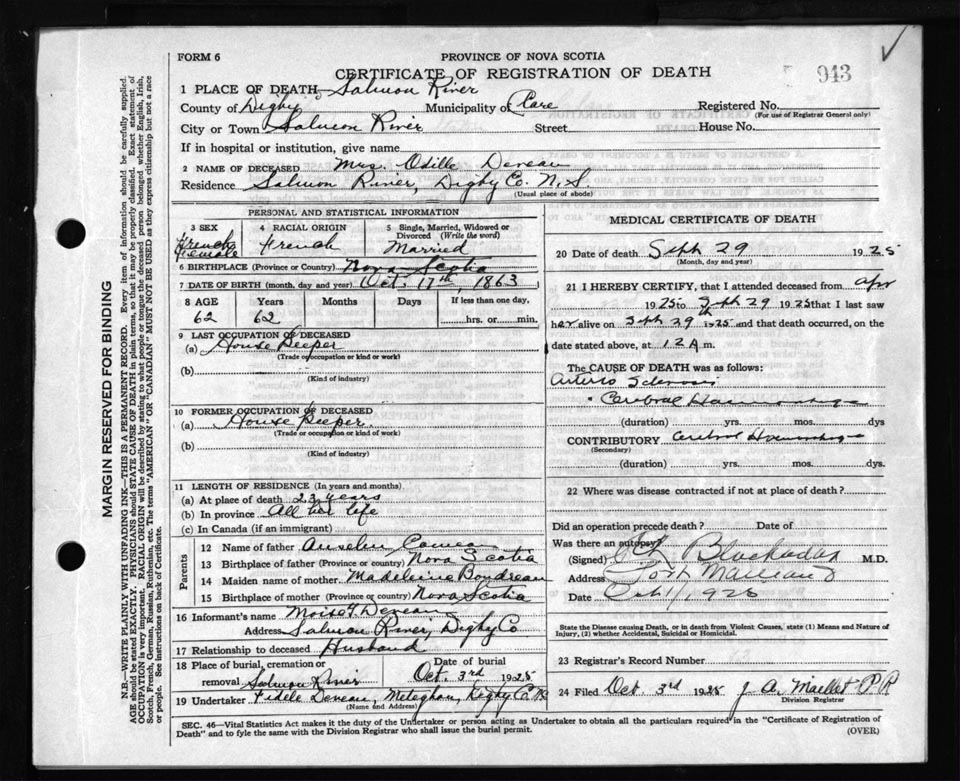 FORM 6
PROVINCE OF NOVA SCOTIA
CERTIFICATE OF REGISTRATION OF DEATH
943
1 PLACE OF DEATH Salmon River
County of Digby Municipality of Clare Registered No.
(For use of Registrar General only)
City or Town Salmon River Street House No.
If in hospital or institution, give name
2 NAME OF DECEASED Mrs. Odille Deveau
Residence Salmon River, Digby Co. N.S.
(Usual place of abode)
PERSONAL AND STATISTICAL INFORMATION
3 SEX 4 RACIAL ORIGIN 5 Single, Married, Widowed or Divorced (Write the word)
French Female French Married
6 BIRTHPLACE (Province or Country) Nova Scotia
7 DATE OF BIRTH (month, day and year) Oct. 17th, 1863
8 AGE Years Months Days If less than one day,
62 62 hrs. or min.
9 LAST OCCUPATION OF DECEASED
(a) House Keeper
(Trade or occupation or kind of work)
(b)
(Kind of industry)
10 FORMER OCCUPATION OF DECEASED
(a) House Keeper
(Trade or occupation or kind of work)
(b)
(Kind of industry)
11 LENGTH OF RESIDENCE (In years and months)
(a) At place of death 23 years
(b) In province All her life
(c) In Canada (if an immigrant)
Parents
12 Name of father Anselm Comeau
13 Birthplace of father (Province or country) Nova Scotia
14 Maiden name of mother Madeleine Boudreau
15 Birthplace of mother (Province or country) Nova Scotia
16 Informant's name Moise F. Deveau
Address Salmon River, Digby Co
17 Relationship to deceased Husband
18 Place of burial, cremation or removal Salmon River Date of burial Oct. 3rd 1925
19 Undertaker Fidele Deveau, Meteghan, Digby Co. NS
(Name and Address)
MEDICAL CERTIFICATE OF DEATH
20 Date of death Sept 29 1925
(Month, day and year)
21 I HEREBY CERTIFY, that I attended deceased from Apr
1925 to Sept 29 1925 that I last saw
her alive on Sept 29th 1925 and that death occurred, on the
date stated above, at 12 A m.
The CAUSE OF DEATH was as follows:
Arterio Sclerosis
Cerebral Haemorrhage
(duration) yrs. mos. dys
CONTRIBUTORY Cerebral Haemorrhage
(Secondary)
(duration) yrs. mos. dys.
22 Where was disease contracted if not at place of death?
Did an operation precede death? Date of
Was there an autopsy?
(Signed) Blackadar M.D.
Address Port Maitland
Date Oct 1, 1925
State the Disease causing Death, or in death from Violent Causes, state (1) Means and Nature of Injury, (2) whether Accidental, Suicidal or Homicidal.
23 Registrar's Record Number
24 Filed Oct. 3rd 1925 J. A. Maillet P R
Division Registrar
SEC. 46—Vital Statistics Act makes it the duty of the Undertaker or person acting as Undertaker to obtain all the particulars required in the "Certificate of Registration of
Death" and to fyle the same with the Division Registrar who shall issue the burial permit.
(OVER)
MARGIN RESERVED FOR BINDING
N.B.—WRITE PLAINLY WITH UNFADING INK—THIS IS A PERMANENT RECORD. Every item of information should be carefully supplied.
AGE should be stated EXACTLY. PHYSICIANS should STATE CAUSE OF DEATH in plain terms, so that it may be properly classified. Exact statement of
OCCUPATION is very important. RACIAL ORIGIN will be described by stating to what people or tongue the deceased person belonged whether English, Irish,
Scotch, French, German, Russian, Ruthenian, etc. The terms "AMERICAN" OR "CANADIAN" MUST NOT BE USED as they express citizenship but not a race
or people. See instructions on back of Certificate.